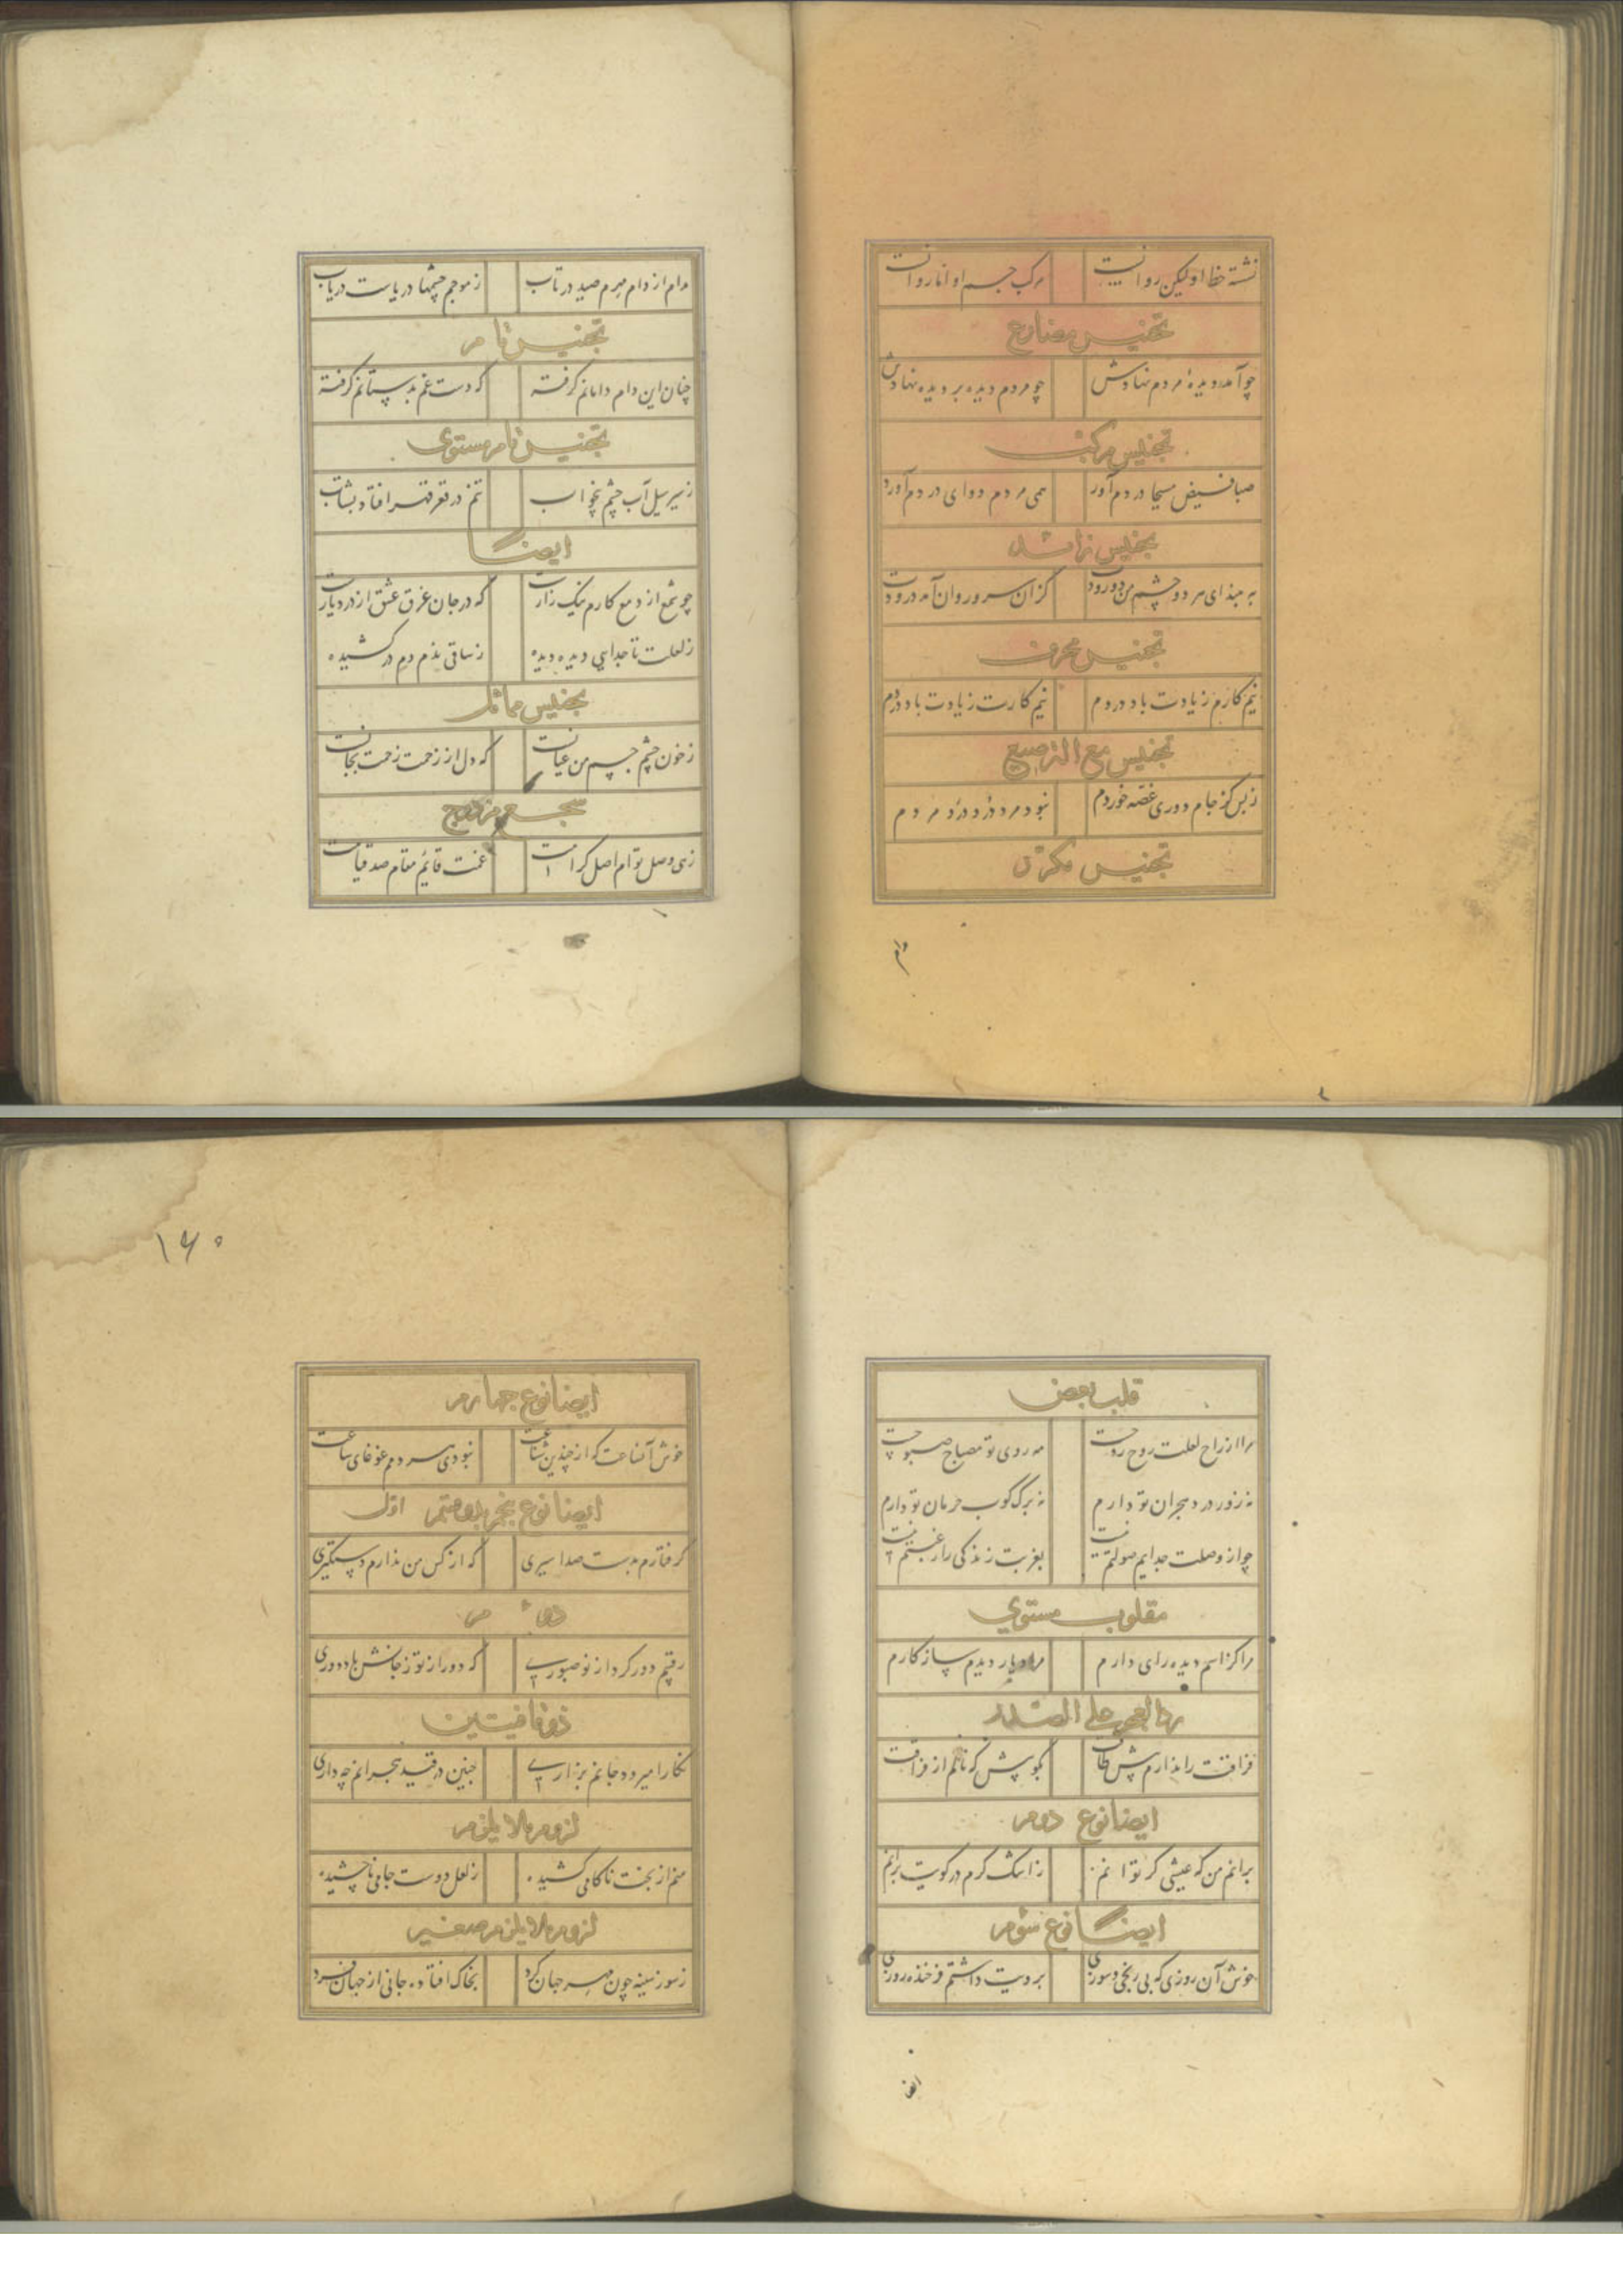 نشسته خط او لیکن روانست مرکب جسم او اما روانست
تجنیس مضارع
چو آمد دیدهٔ مردم نهادش چو مردم دیده بر دیده نهادش
تجنیس مرکب
صبا فیض مسیحا در دم آور همی مردم دوای دردم آورد
تجنیس زائد
به مبدای هر دو چشم من دو رود کزان سرو روان آمد درودت
تجنیس محرف
نیم کارم زیادت باد دردم نیم کارت زیادت باد دردم
تجنیس مع الترصیع
ز بس کز جام دوری غصه خوردم نبود مرد درد درد مردم
تجنیس مکرر
دام
مدام از دام مهرم صید در تاب ز موجم چشمها دریاست دریاب
تجنیس تام
چنان این دام دامانم گرفته که دست غم بدستانم گرفته
تجنیس تام مستوی
ز سیر سیل آب چشم بیخواب تنم در قعر قهر افتاد بشتاب
ایضا
چو شمع از دمع کارم نیک زارست که در جان غرق عشق از درد یارست
ز لعلت تا جدایی دیده دیده ز ساقی بذم دم در کشیده
تجنیس مماثل
ز خون چشم جسم من عیانست که دل از زخمت زحمت بجانست
سجع مزدوج
زهی وصل توام اصل کرامت غمت قایم مقام صد قیامت
قلب بعض
مرا از راح لعلت روح روحست مه روی تو مصباح صبوحست
نه زور درد هجران تو دارم نه برگ کوب حرمان تو دارم
چو از وصلت جدایم صولتم نیست بغربت زندگی را رغبتم نیست
مقلوب مستوی
مرا کز اسم دیده رای دارم مراد یار دیدم ساز کارم
رد العجز علی الصدر
فراقت را ندارم پیش طاقت بکو پیش که نالم از فراقت
ایضا نوع دوم
برانم من که عیشی کر توانم ز اشک کرم در کویت برانم
ایضا نوع سوم
خوش آن روزی که بی رنجی و سوزی بر ویت داشتم فرخنده روزی
ایضا
۱۶۰
ایضا نوع چهارم
خوش آنساعت که از چندین شناعت نبودی سر دمم غوغای ساعت
ایضا نوع پنجم بدو قسم اول
گرفتارم بدست صد اسیری که از کس من ندارم دستگیری
دوم
رقیبم دور کرد از تو صبوری که دور از تو ز جانش باد دوری
ذو قافیتین
نکارا میرود جانم بزاری چنین در قید هجرانم چه داری
لزوم ما لا یلزم
منم از بخت ناکامی کشیده ز لعل دوست جامی ناچشیده
لزوم ما لا یلزم صغیر
ز سوز سینه چون مهر جهان کرد بخاک افتاده جانی از جهان فرد